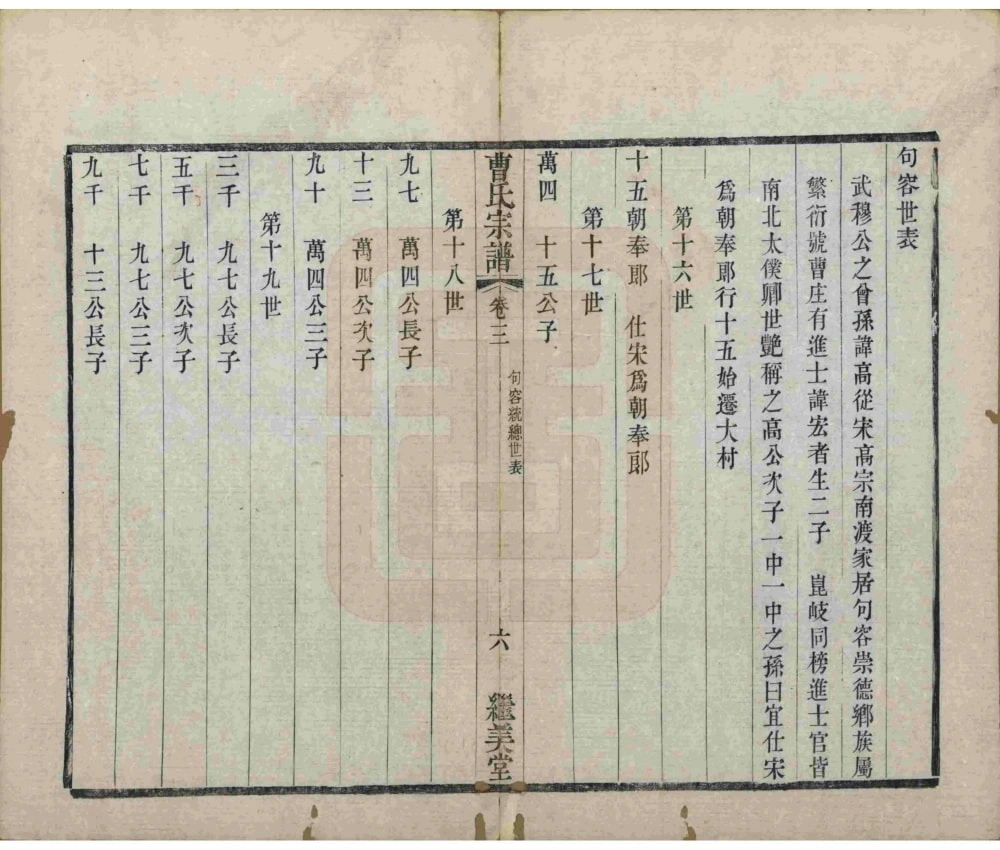 句容世表
武穆公之曾孫諱高從宋高宗南渡家居句容崇德鄉族屬
繁衍號曹庄有進士諱宏者生二子　崑岐同榜進士官皆
南北太僕卿世艷稱之高公次子一中一中之孫曰宜仕宋
爲朝奉郎行十五始遷大村
第十六世
十五朝奉郎　仕宋爲朝奉郎
第十七世
萬四　十五公子
曹氏宗譜　卷三　句容統總世表　六　繼美堂
第十八世
九七　萬四公長子
十三　萬四公次子
九十　萬四公三子
第十九世
三千　九七公長子
五千　九七公次子
七千　九七公三子
九千　十三公長子